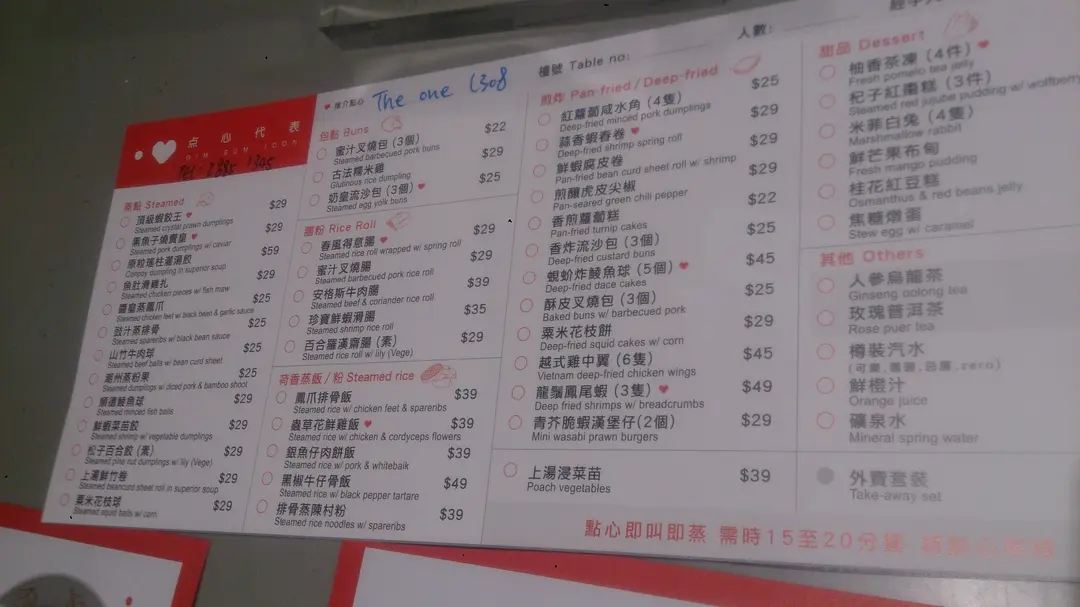 点心代表
DIM SUM ICON
Tel 2385 1395
推介點心
The one L308
檯號 Table no:
人數:
蒸點 Steamed
頂級蝦餃王 $29
Steamed crystal prawn dumplings
黑魚子燒賣皇 $29
Steamed pork dumplings w/ caviar
原粒瑤柱灌湯餃 $59
Conpoy dumpling in superior soup
魚肚滑雞扎 $29
Steamed chicken pieces w/ fish maw
醬皇蒸鳳爪 $25
Steamed chicken feet w/ black bean & garlic sauce
豉汁蒸排骨 $25
Steamed spareribs w/ black bean sauce
山竹牛肉球 $25
Steamed beef balls w/ bean curd sheet
潮州蒸粉果 $25
Steamed dumplings w/ diced pork & bamboo shoot
順德鯪魚球 $29
Steamed minced fish balls
鮮蝦菜苗餃 $29
Steamed shrimp w/ vegetable dumplings
松子百合餃 (素) $29
Steamed pine nut dumplings w/ lily (Vege)
上湯鮮竹卷 $29
Steamed beancurd sheet roll in superior soup
粟米花枝球 $29
Steamed squid balls w/ corn
包點 Buns
蜜汁叉燒包 (3個) $22
Steamed barbecued pork buns
古法糯米雞 $29
Glutinous rice dumpling
奶皇流沙包 (3個) $25
Steamed egg yolk buns
腸粉 Rice Roll
春風得意腸 $29
Steamed rice roll wrapped w/ spring roll
蜜汁叉燒腸 $29
Steamed barbecued pork rice roll
安格斯牛肉腸 $39
Steamed beef & coriander rice roll
珍寶鮮蝦滑腸 $35
Steamed shrimp rice roll
百合羅漢齋腸 (素) $29
Steamed rice roll w/ lily (Vege)
荷香蒸飯 / 粉 Steamed rice
鳳爪排骨飯 $39
Steamed rice w/ chicken feet & spareribs
蟲草花鮮雞飯 $39
Steamed rice w/ chicken & cordyceps flowers
銀魚仔肉餅飯 $39
Steamed rice w/ pork & whitebaik
黑椒牛仔骨飯 $49
Steamed rice w/ black pepper tartare
排骨蒸陳村粉 $39
Steamed rice noodles w/ spareribs
煎炸 Pan-fried / Deep-fried
紅蘿蔔咸水角 (4隻) $25
Deep-fried minced pork dumplings
蒜香蝦春卷 $29
Deep-fried shrimp spring roll
鮮蝦腐皮卷 $29
Pan-fried bean curd sheet roll w/ shrimp
煎釀虎皮尖椒 $29
Pan-seared green chili pepper
香煎蘿蔔糕 $22
Pan-fried turnip cakes
香炸流沙包 (3個) $25
Deep-fried custard buns
蜆蚧炸鯪魚球 (5個) $45
Deep-fried dace cakes
酥皮叉燒包 (3個) $25
Baked buns w/ barbecued pork
粟米花枝餅 $29
Deep-fried squid cakes w/ corn
越式雞中翼 (6隻) $45
Vietnam deep-fried chicken wings
龍鬚鳳尾蝦 (3隻) $49
Deep fried shrimps w/ breadcrumbs
青芥脆蝦漢堡仔(2個) $29
Mini wasabi prawn burgers
上湯浸菜苗 $39
Poach vegetables
甜品 Dessert
柚香茶凍 (4件)
Fresh pomelo tea jelly
杞子紅棗糕 (3件)
Steamed red jujube pudding w/
米菲白兔 (4隻)
Marshmallow rabbit
鮮芒果布甸
Fresh mango pudding
桂花紅豆糕
Osmanthus & red beans jelly
焦糖燉蛋
Stew egg w/ caramel
其他 Others
人參烏龍茶
Ginseng oolong tea
玫瑰普洱茶
Rose puer tea
樽裝汽水
鮮橙汁
Orange juice
礦泉水
Mineral spring water
外賣套裝
Take-away set
點心即叫即蒸 需時15至20分鐘